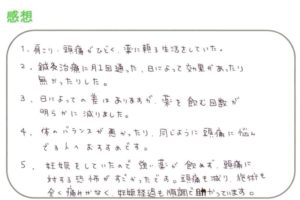 感想
1. 肩こり、頭痛がひどく、薬に頼る生活をしていた。
2. 鍼灸治療に月2回通った。日によって効果があったり
無かったりした。
3. 日によっての差はありますが、薬を飲む回数が
明らかに減りました。
4. 体のバランスが悪かったり、同じように頭痛に悩ん
でる人のおすすめです。
5. 妊娠をしていたので強い薬が飲めず、頭痛に
対する恐怖がすごかったです。頭痛も減り、施術も
全く痛みがなく、妊娠経過も順調で助かっています。